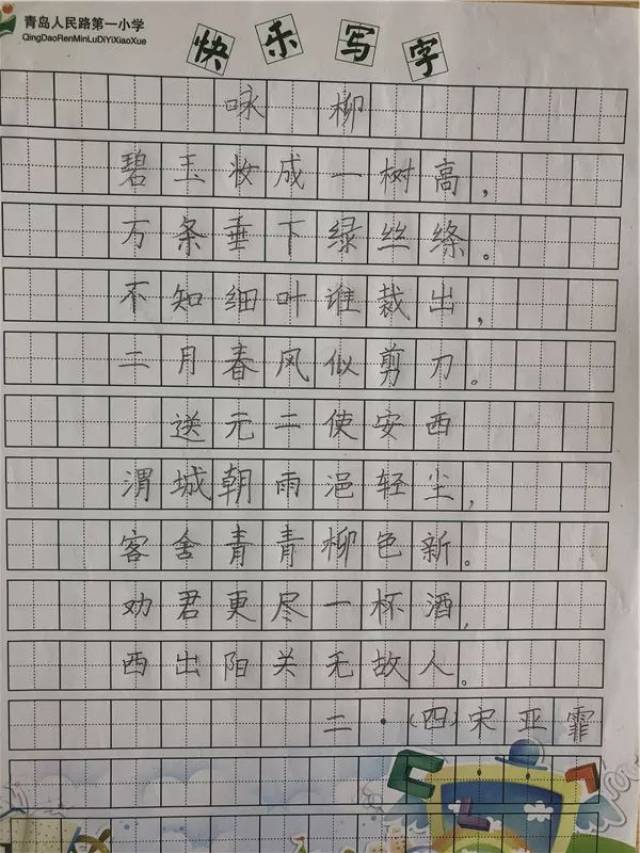 青岛人民路第一小学
QingDaoRenMinLuDiYiXiaoXue
快乐写字
咏柳
碧玉妆成一树高,
万条垂下绿丝绦。
不知细叶谁裁出,
二月春风似剪刀。
送元二使安西
渭城朝雨浥轻尘,
客舍青青柳色新。
劝君更尽一杯酒,
西出阳关无故人。
二·(四)宋亚霏